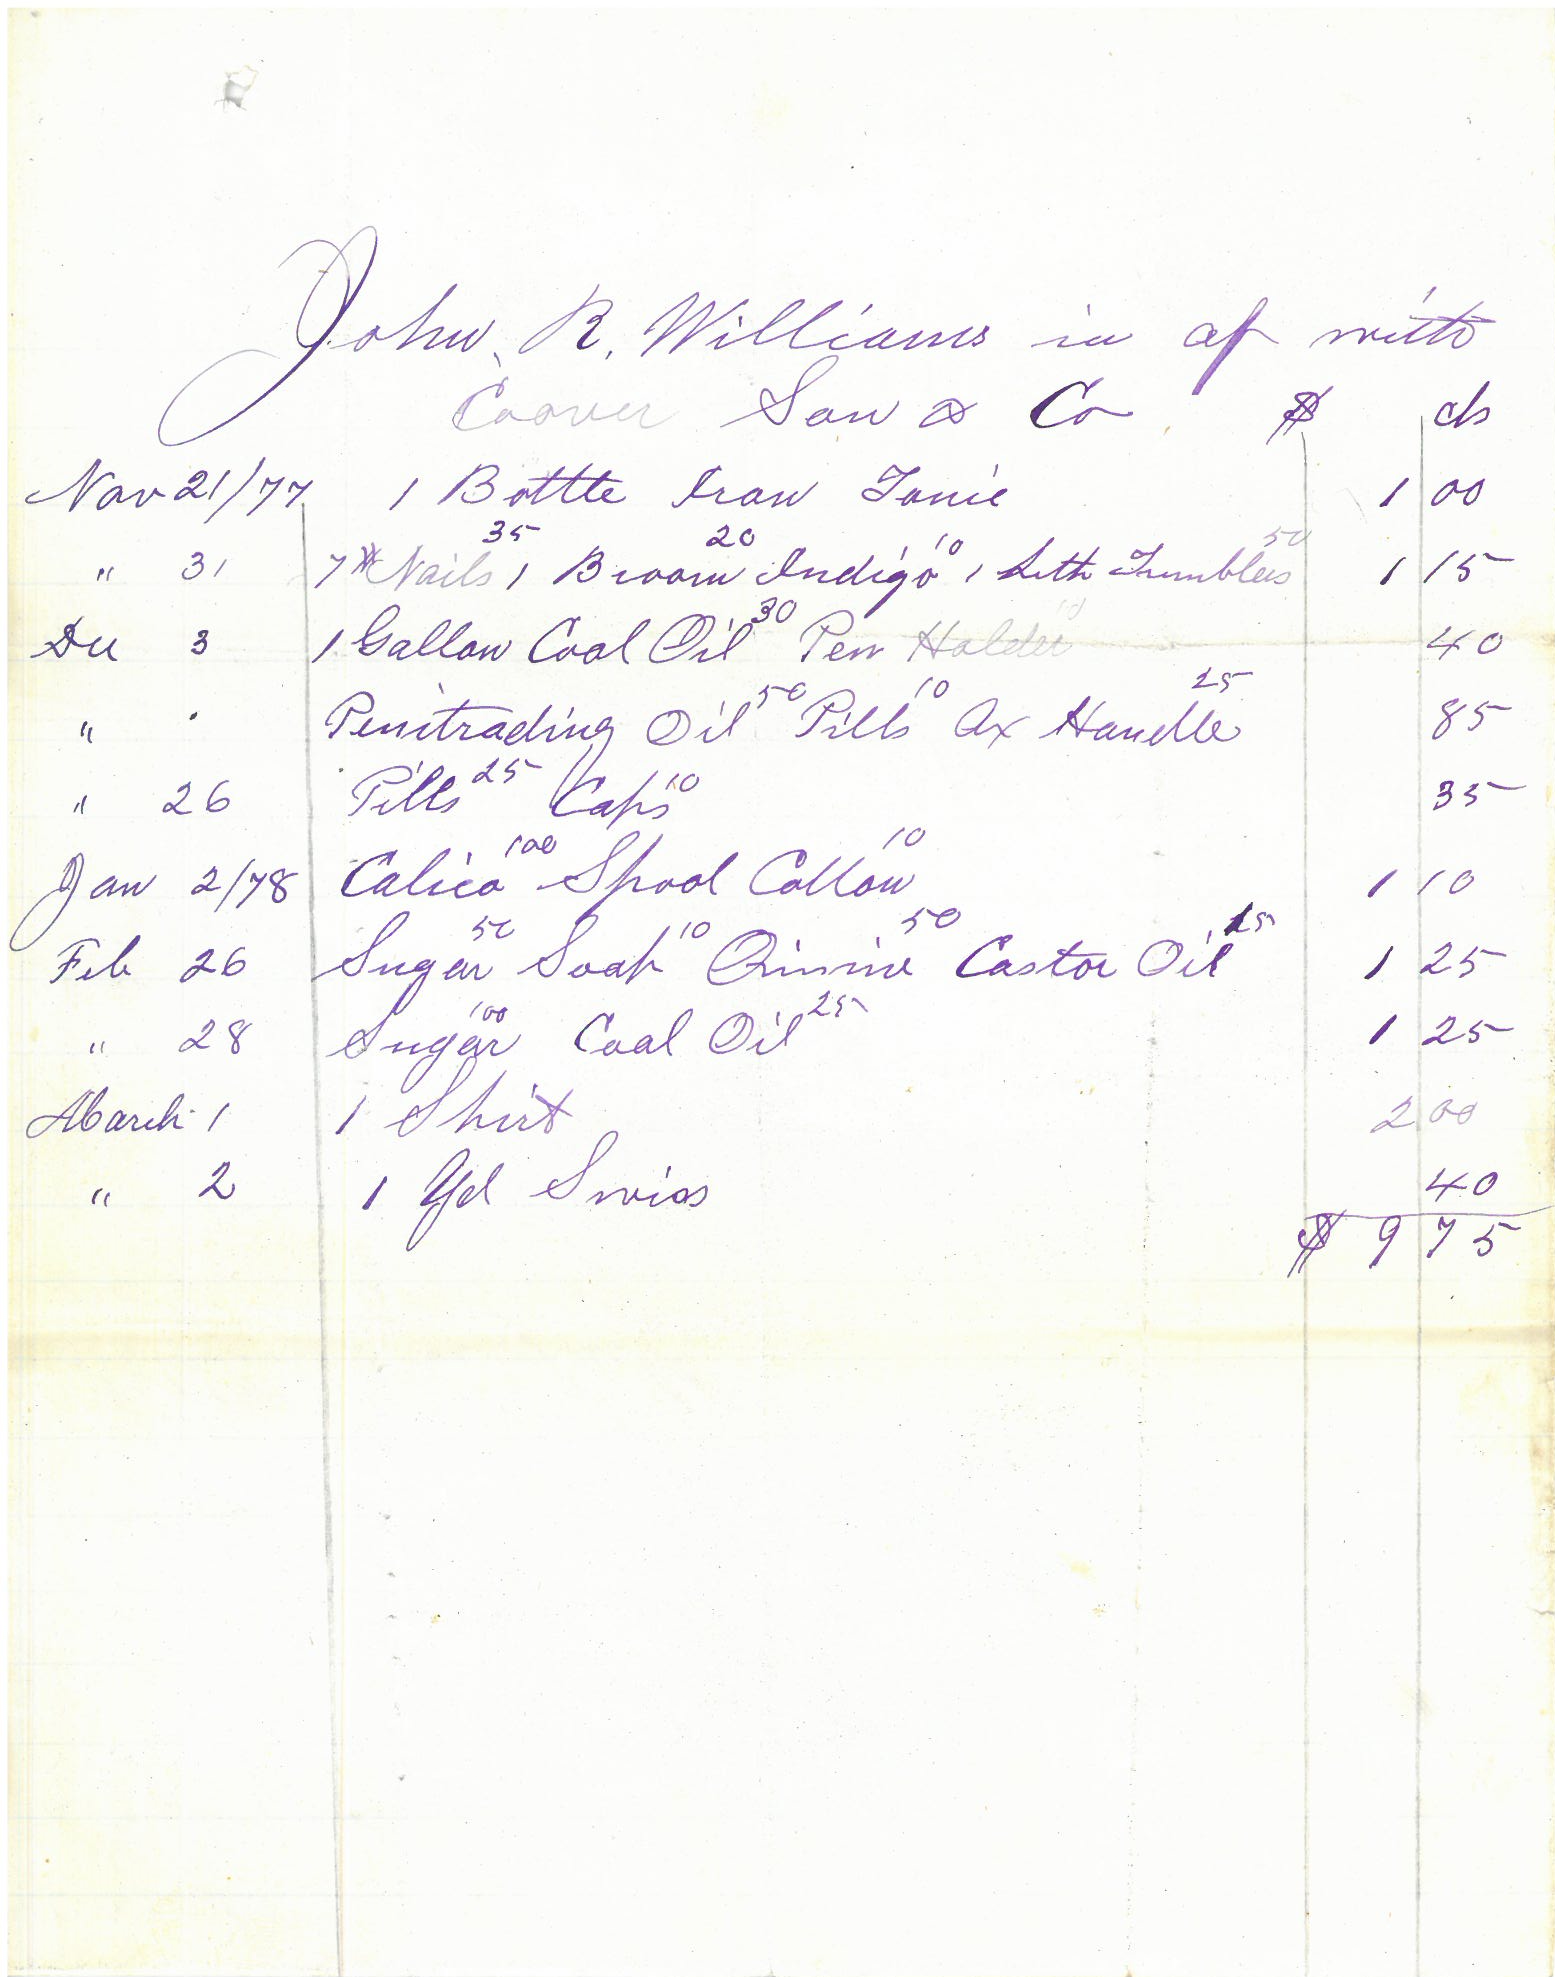 John R. Williams in a/c with
Coover Son & Co $ cts
Nov 21/77 1 Bottle Iron Tonic 1 00
" 31 7# Nails 35 1 Broom 20 Indigo 10 1 Seth Tumblers 50 1 15
Dec 3 1 Gallon Coal Oil 30 Pen Holder 10 40
" . Penitrading Oil 50 Pills 10 Ax Handle 25 85
" 26 Pills 25 Caps 10 35
Jan 2/78 Calico 100 Spool Cotton 10 1 10
Feb 26 Sugar 50 Soap 10 Quinine 50 Castor Oil 15 1 25
" 28 Sugar 100 Coal Oil 25 1 25
March 1 1 Shirt 2 00
" 2 1 Yd Swiss 40
$ 9 75